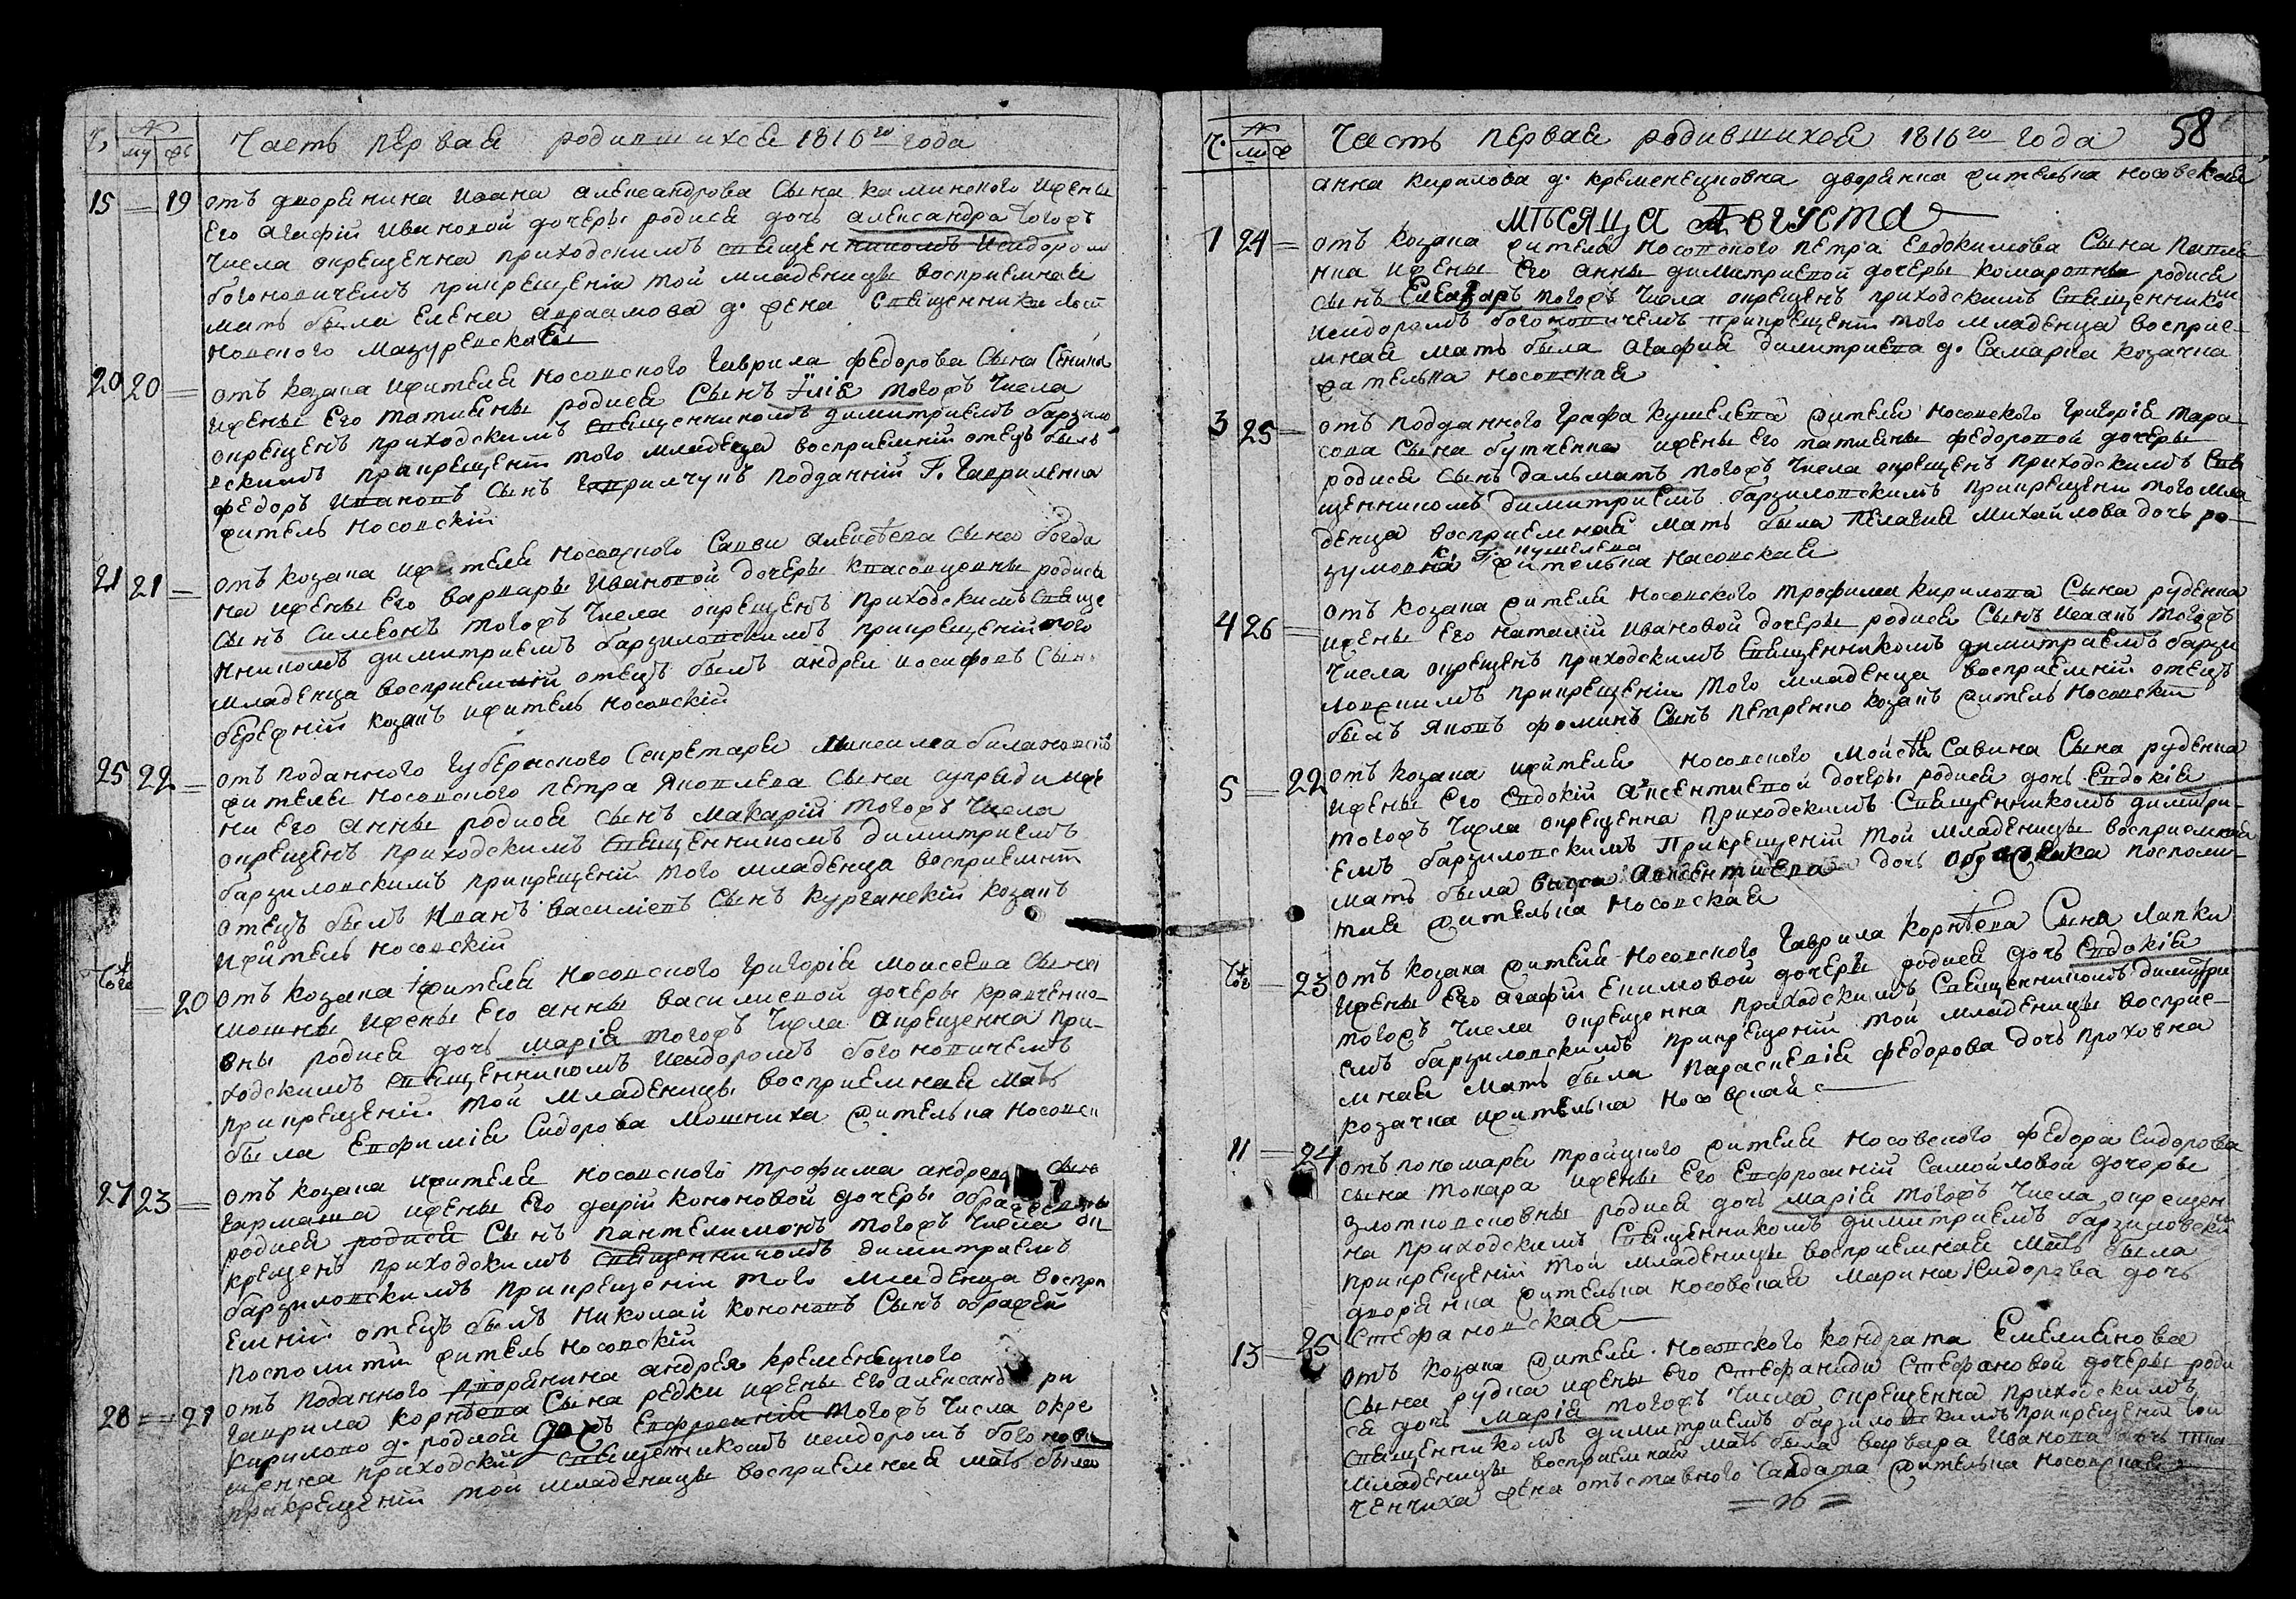 Ч. № му же Часть первая родившихся 1816го года
15 = 19 отъ дворянина Ивана Александрова сына Каминского и жены
его Агафiи Ивановой дочеры родися дочь Александра тогожъ
числа окрещенна приходскимъ священникомъ Исидоромъ
богоновичемъ при крещенiи той младеницы восприемная
мать была Елена Авраамова д. жена священника
носовского Мазуревская
20 20 = отъ козака и жителя носовского Гаврила Федорова сына
и жены его Татiяны родися сынъ Iлiя тогожъ числа
окрещенъ приходскимъ священникомъ димитрiемъ барзило
вскимъ при крещенiи того младенца восприемнiй отецъ былъ
Федоръ Ивановъ сынъ Гаврилчукъ подданнiй Г. Гавриленка
житель носовскiй
21 21 = отъ козака и жителя носовского Саввы Алексѣева сына богда
на и жены его Варвары Ивановой дочеры Квасовщенны родися
сынъ Симеонъ тогожъ числа окрещенъ приходскимъ свяще
нникомъ димитрiемъ барзиловскимъ при крещенiи того
младенца восприемнiй отецъ былъ Андрей Иосифовъ сынъ
бережнiй козакъ и житель носовскiй
25 22 = отъ поданного губернского секретаря Максима билановского
жителя носовского Петра Яковлева сына
ни его Анны родися сынъ Макарiй тогожъ числа
окрещенъ приходскимъ священникомъ димитрiемъ
барзиловскимъ при крещенiи того младенца восприемнiй
отецъ былъ Иванъ Василiевъ сынъ Курганскiй козакъ
и житель носовскiй
тогож = 20 отъ козака жителя носовского Григорiя Моисеева сына
мошны и жены его Анны Василиевой дочеры Кравченко
вны родися дочь Марiя тогожъ числа окрещенна при-
ходскимъ священникомъ Исидоромъ богоновичемъ
при крещенiи той младеницы восприемная мать
была Евфимiя Сидорова Мошниха жителька носовск
27 23 = отъ козака и жителя носовского Трофима Андреева сына
Гармаша и жены его Дарiи Кононовой дочеры
родися родися сынъ Пантелимонъ тогожъ числа ок
крещенъ приходскимъ священникомъ димитрiемъ
барзиловскимъ при крещенiи того младенца воспри
емнiй отецъ былъ Николай Кононовъ сынъ ображей
посполитiй житель носовскiй
28 = = 21 отъ поданного дворянина Андрея Кременецкого
Гаврила Корнѣева сына Редки и жены его Александри
Кирилово д. родися дочь Евфросинiя тогожъ числа окре
щенна приходскiй священникомъ Исидоромъ богонови
при крещенiи той младеницы восприемная мать была
Ч. № м ж Часть первая родившихся 1816го года 58
Анна Кирилова д. Кременецковна дворянка жителька носовская
мѣсяца Августа
1 24 = отъ козака жителя носовского Петра Евдокимова сына Павле
нка и жены его Анны димитриевой дочеры Комаровны родися
сынъ Елеазаръ тогожъ числа окрещенъ приходскимъ священникомъ
Исидоромъ богоновичемъ при крещенiи того младенца восприе-
мная мать была Агафия димитриева д. Самарка козачка
жителька носовская
3 25 = отъ подданного графа Кушелева жителя носовского Григорiя Тара-
сова сына бутченка и жены его Татияны Федоровой дочеры
родися сынъ Дальматъ тогожъ числа окрещенъ приходскимъ свя
щенникомъ димитрiемъ барзиловскимъ при крещении того мла
денца восприемная мать была Пелагия Михайлова дочь ро-
зумовна к. Г. Кушелева жителька носовская
4 26 = отъ козака жителя носовского Трофима Кирилова сына Руденка
и жены его Наталiи Ивановой дочеры родися сынъ Исаакъ тогожъ
числа окрещенъ приходскимъ священникомъ димитрiемъ барзи
ловскимъ при крещенiи того младенца восприемнiй отецъ
былъ Яковъ Фоминъ сынъ Петренко козакъ житель носовскiй
5 = 22 отъ козака и жителя носовского Мойсѣя Савина сына Руденка
и жены его Евдокiи Авксентиевой дочеры родися дочь Евдокiя
тогожъ числа окрещенна приходскимъ священникомъ димитри-
емъ барзиловскимъ при крещенiи той младеницы восприемная
мать была Авксентиева дочь посполи-
тая жителька носовская
тогож = 23 отъ козака жителя носовского Гаврила Корнѣева сына Лапки
и жены его Агафiи Екимовой дочеры родися дочь Евдокiя
тогожъ числа окрещенна приходскимъ священникомъ димитри
емъ барзиловскимъ при крещенiи той младеницы восприе-
мная мать была Параскевiя Федорова дочь Проховна
козачка и жителька носовская
11 = 24 отъ пономаря тройцкого жителя носовского Федора Сидорова
сына Токара и жены его Евфросинiи Самойловой дочеры
Злотковсковны родися дочь Марiя тогожъ числа окрещен
на приходскимъ священникомъ димитрiемъ барзиловским
при крещенiи той младеницы восприемная мать была
дворянка жителька носовская Марина Сидорова дочь
Стефановская
13 = 25 отъ козака жителя носовского Кондрата Емелиянова
сына Рудка и жены его Стефаниди Стефановой дочеры роди
ся дочь Марiя тогожъ числа окрещенна приходскимъ
священникомъ димитрiемъ барзиловскимъ при крещенiи той
младеницы восприемная мать была Варвара Иванова дочь Тка
ченчиха жена отставного салдата жителька носовская
= 26 =